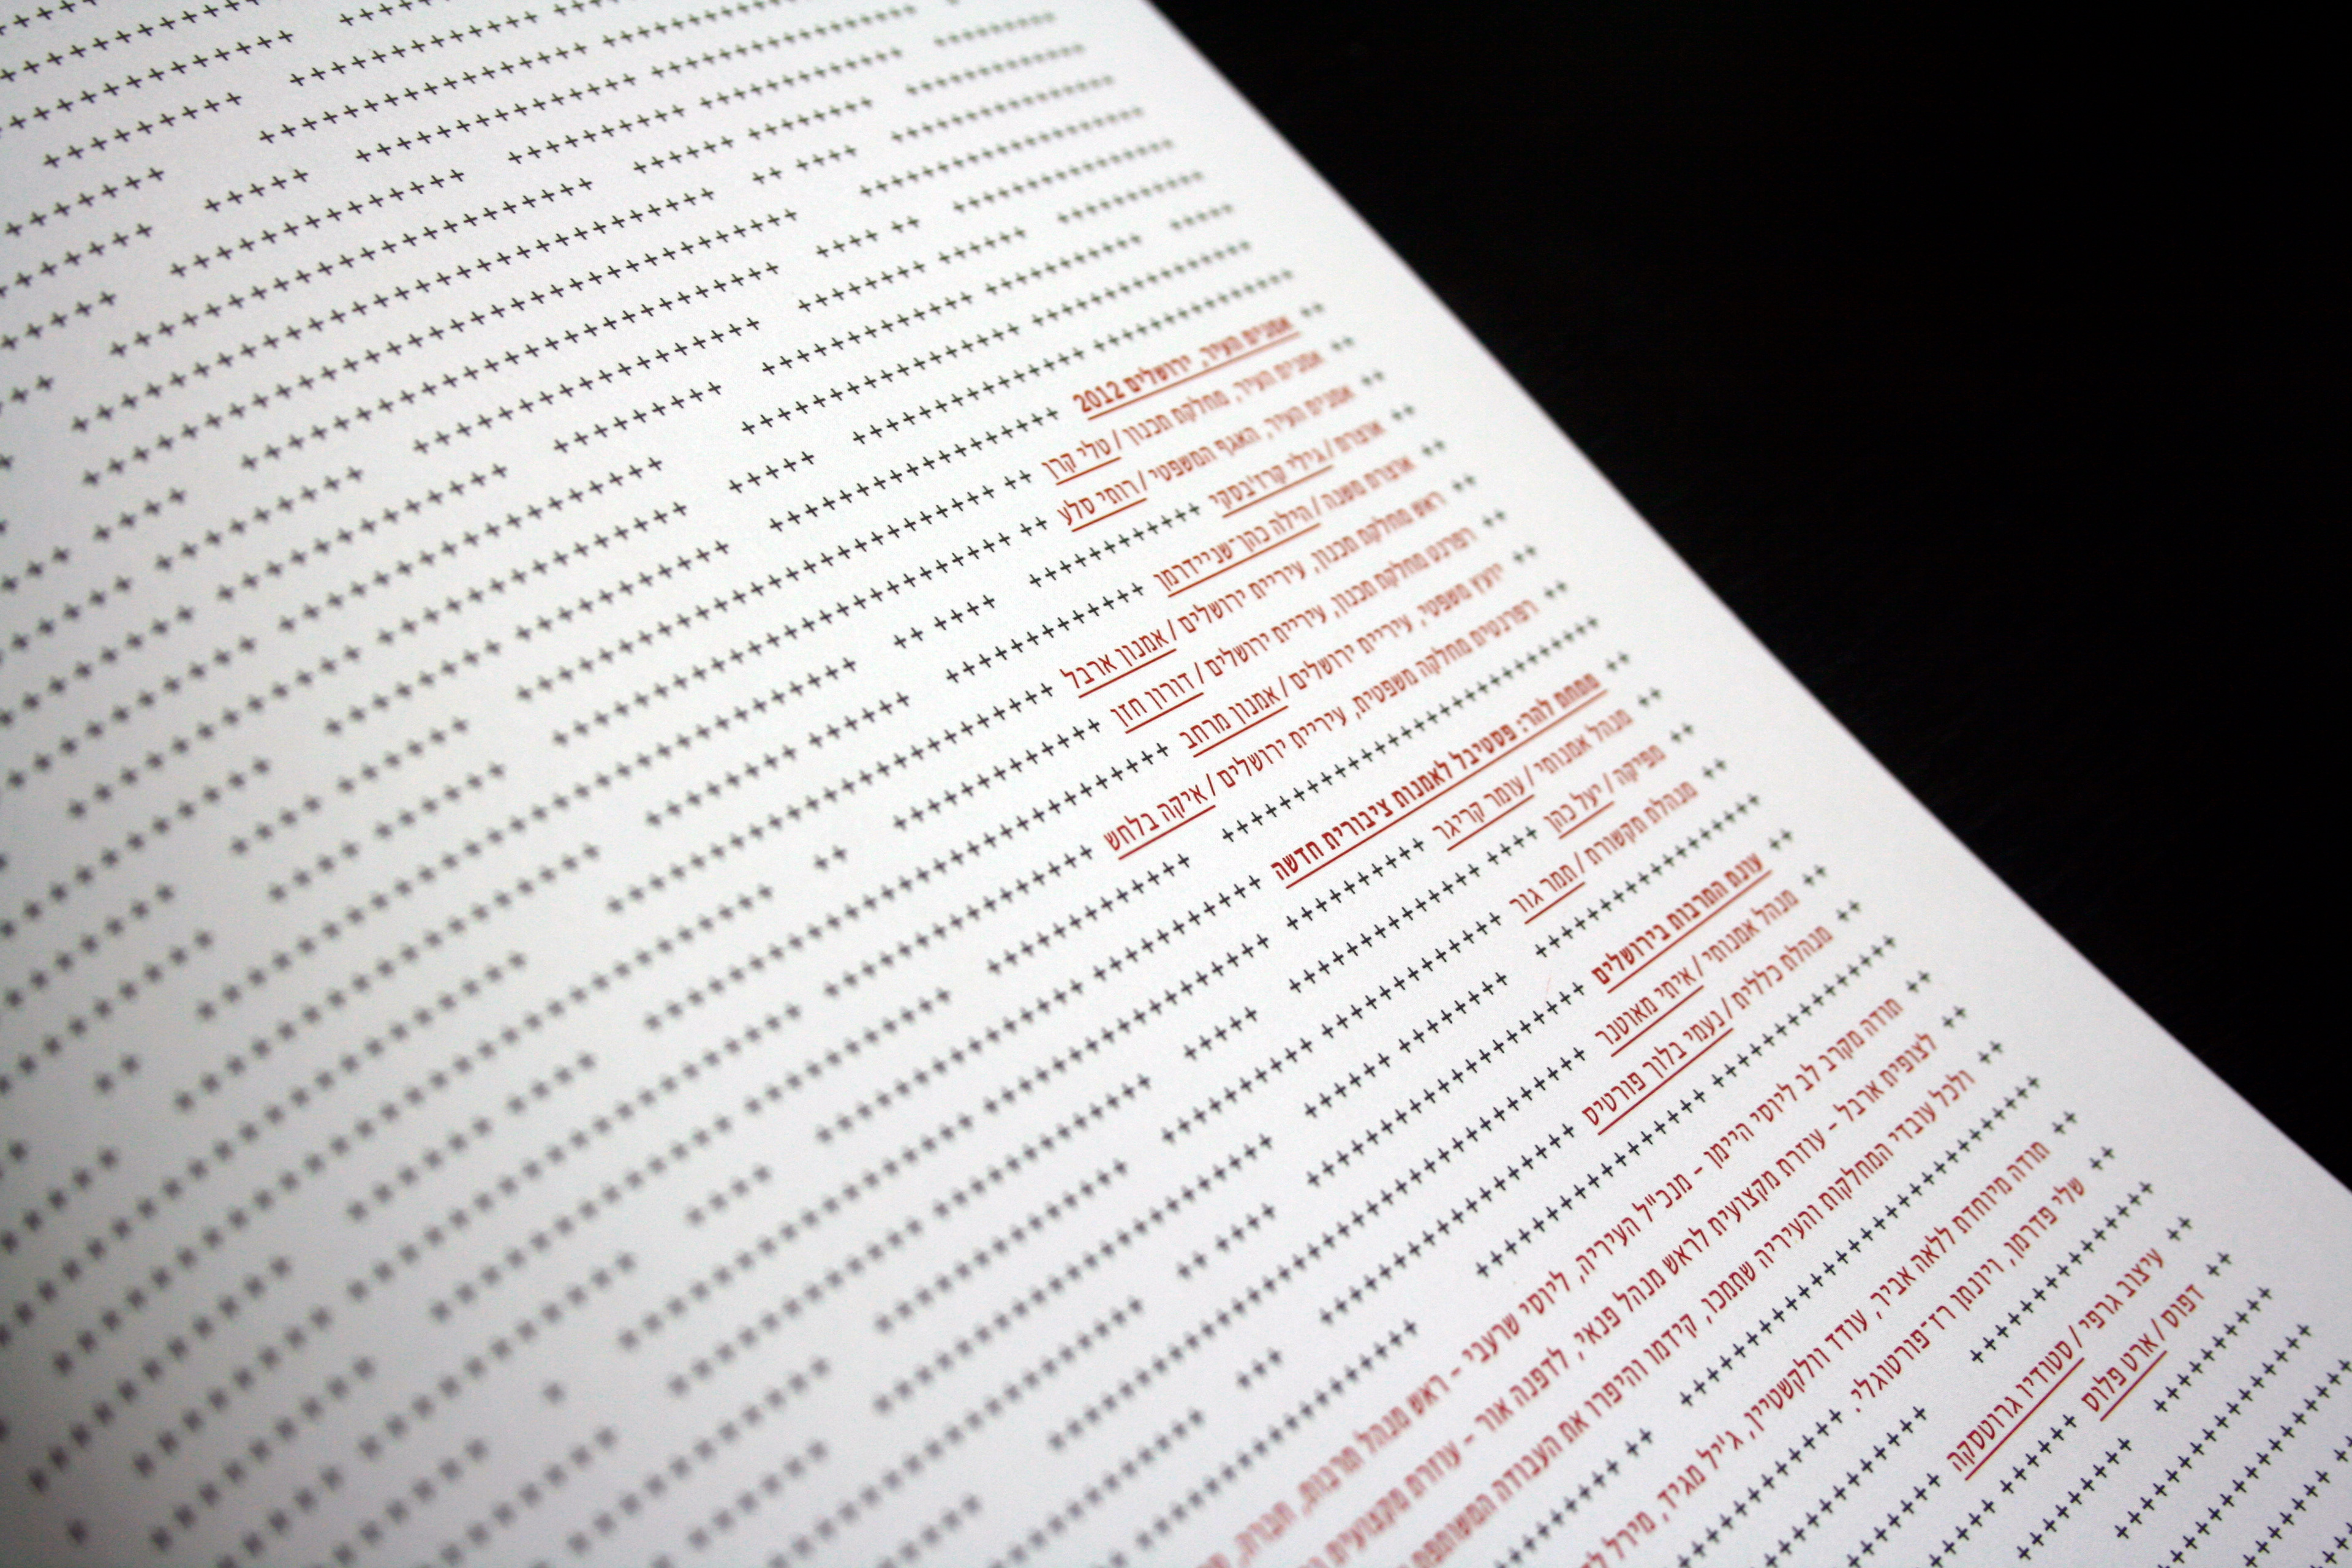 אמנים העיר, ירושלים 2012
אמנים העיר, מחלקת תכנון / טלי קרן
אמנים העיר, האגף המשפטי / רותי סלע
אוצרת / גילי קרז'בסקי
אוצרת משנה / הילה כהן־שניידרמן
ראש מחלקת תכנון, עיריית ירושלים / אמנון ארבל
רפרנט מחלקת תכנון, עיריית ירושלים / דורון חזן
יועץ משפטי, עיריית ירושלים / אמנון מרחב
רפרנטים מחלקה משפטית, עיריית ירושלים / איקה בלחש
מתחת להר: פסטיבל לאמנות ציבורית חדשה
מנהל אמנותי / עומר קריגר
מפיקה / יעל כהן
מנהלת תקשורת / תמר גור
עונת התרבות בירושלים
מנהל אמנותי / איתי מאוטנר
מנהלת כללית / נעמי בלוך פורטיס
תודה מקרב לב ליוסי היימן - מנכ״ל העיריה, ליוסי שרעבי - ראש מנהל תרבות, חברה,
לצופית ארבל - עוזרת מקצועית לראש מנהל פנאי, לדפנה אור - עוזרת מקצועית
ולכל עובדי המחלקות והעיריה שתמכו, קידמו והיפרו את העבודה המשותפת
תודה מיוחדת ללאה אביר, עודד וולקשטיין, ג׳ייל מגיד, מירל
שלי פדרמן, ויונתן רז־פורטוגלי.
עיצוב גרפי / סטודיו גרוטסקה
דפוס / ארט פלוס